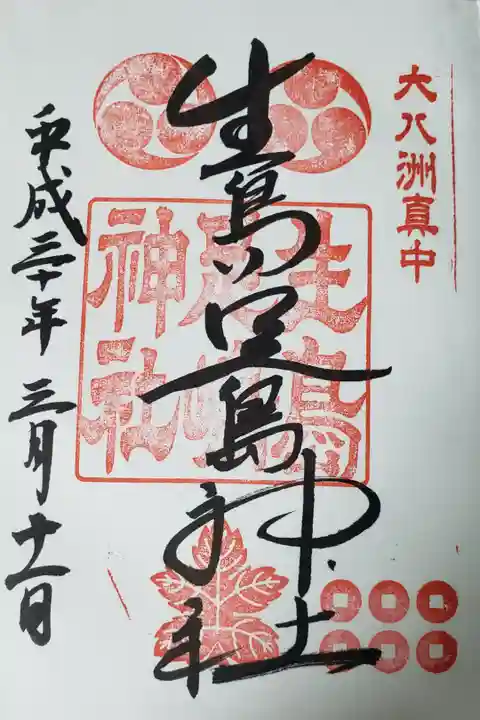 大八洲真中
生島足島神社
生島
足嶋
神社
平成三十年三月十一日